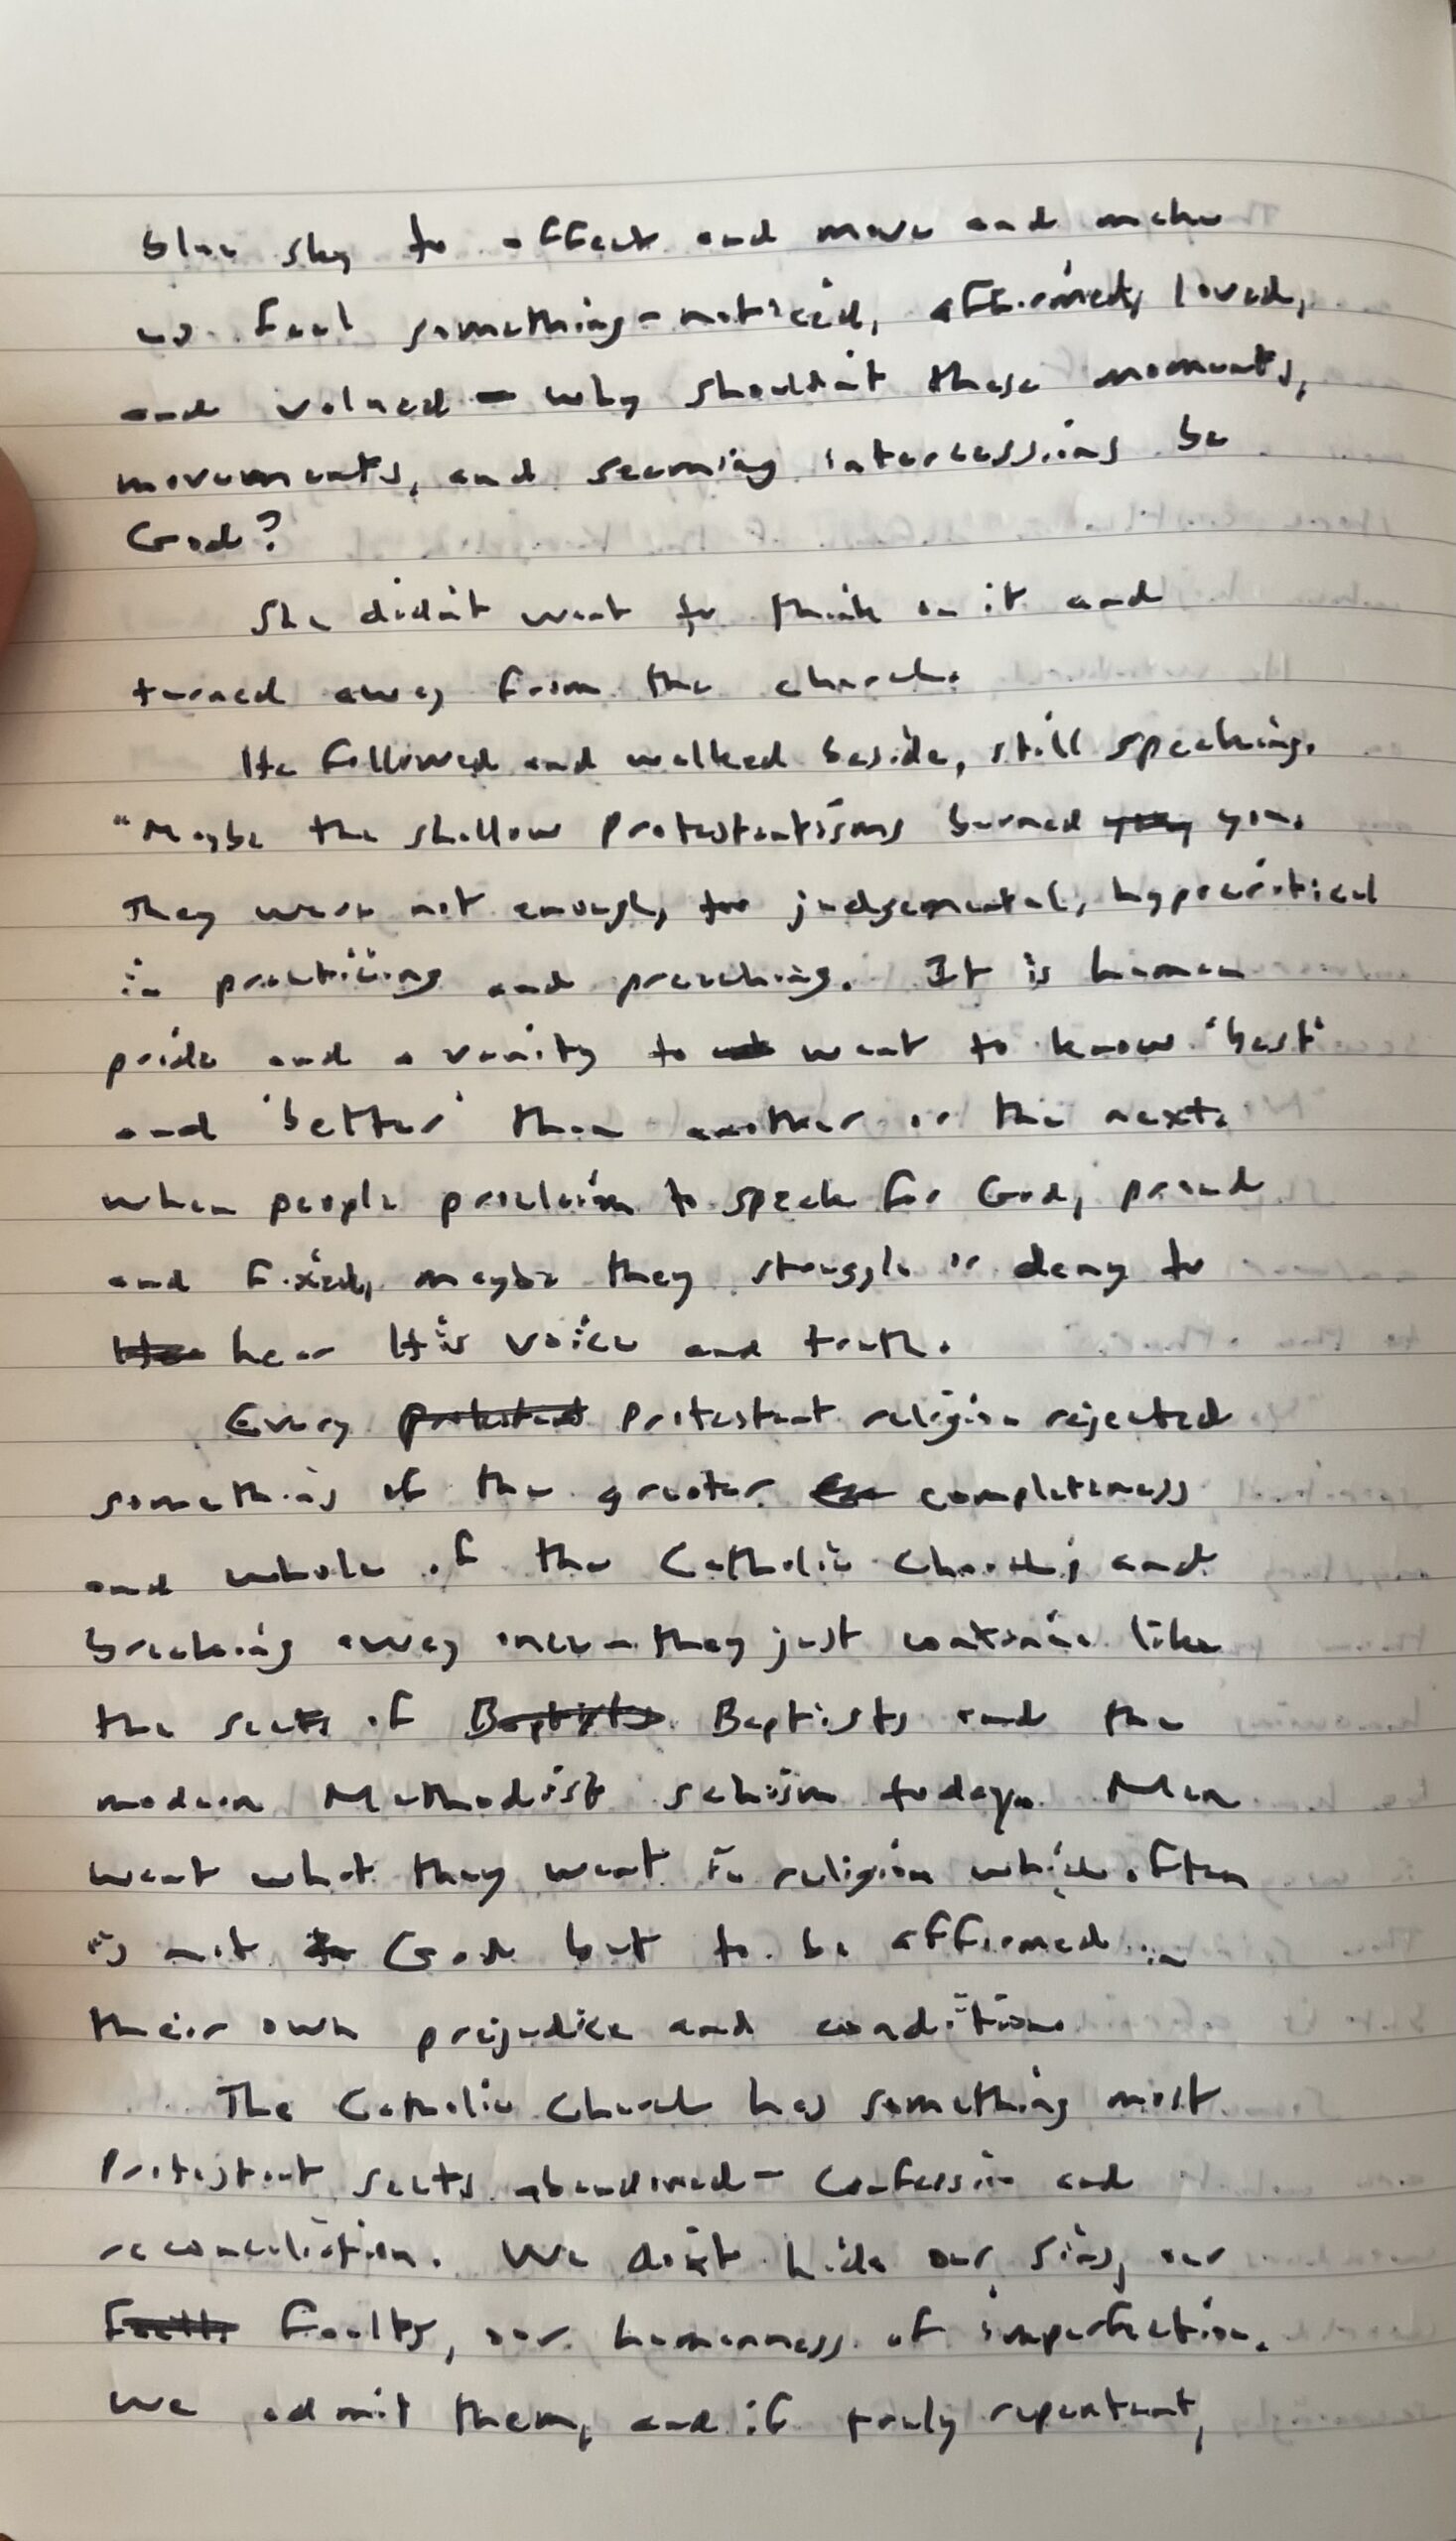 blue sky to affect and move and make
us feel something - noticed, affirmed, loved,
and valued - why shouldn't these moments,
movements, and seeming intercessions be
God?
She didn't want to think on it and
turned away from the church.
He followed and walked beside, still speaking.
"Maybe the shallow Protestantisms burned you.
They were not enough, too judgemental, hypocritical
in practicing and preaching. It is human
pride and a vanity to want to know 'best'
and 'better' than another or the next.
When people proclaim to speak for God, proud
and fixed, maybe they struggle or deny to
hear His voice and truth.
Every Protestant religion rejected
something of the greater completeness
and whole of the Catholic Church; and
breaking away once - they just continue like
the sects of Baptists and the
modern Methodist schism today. Men
want what they want in religion which often
is not God but to be affirmed in
their own prejudice and condition.
The Catholic Church has something most
Protestant sects abandoned - Confession and
reconciliation. We don't hide our sins, our
faults, our humanness of imperfection.
We admit them, and if truly repentant,